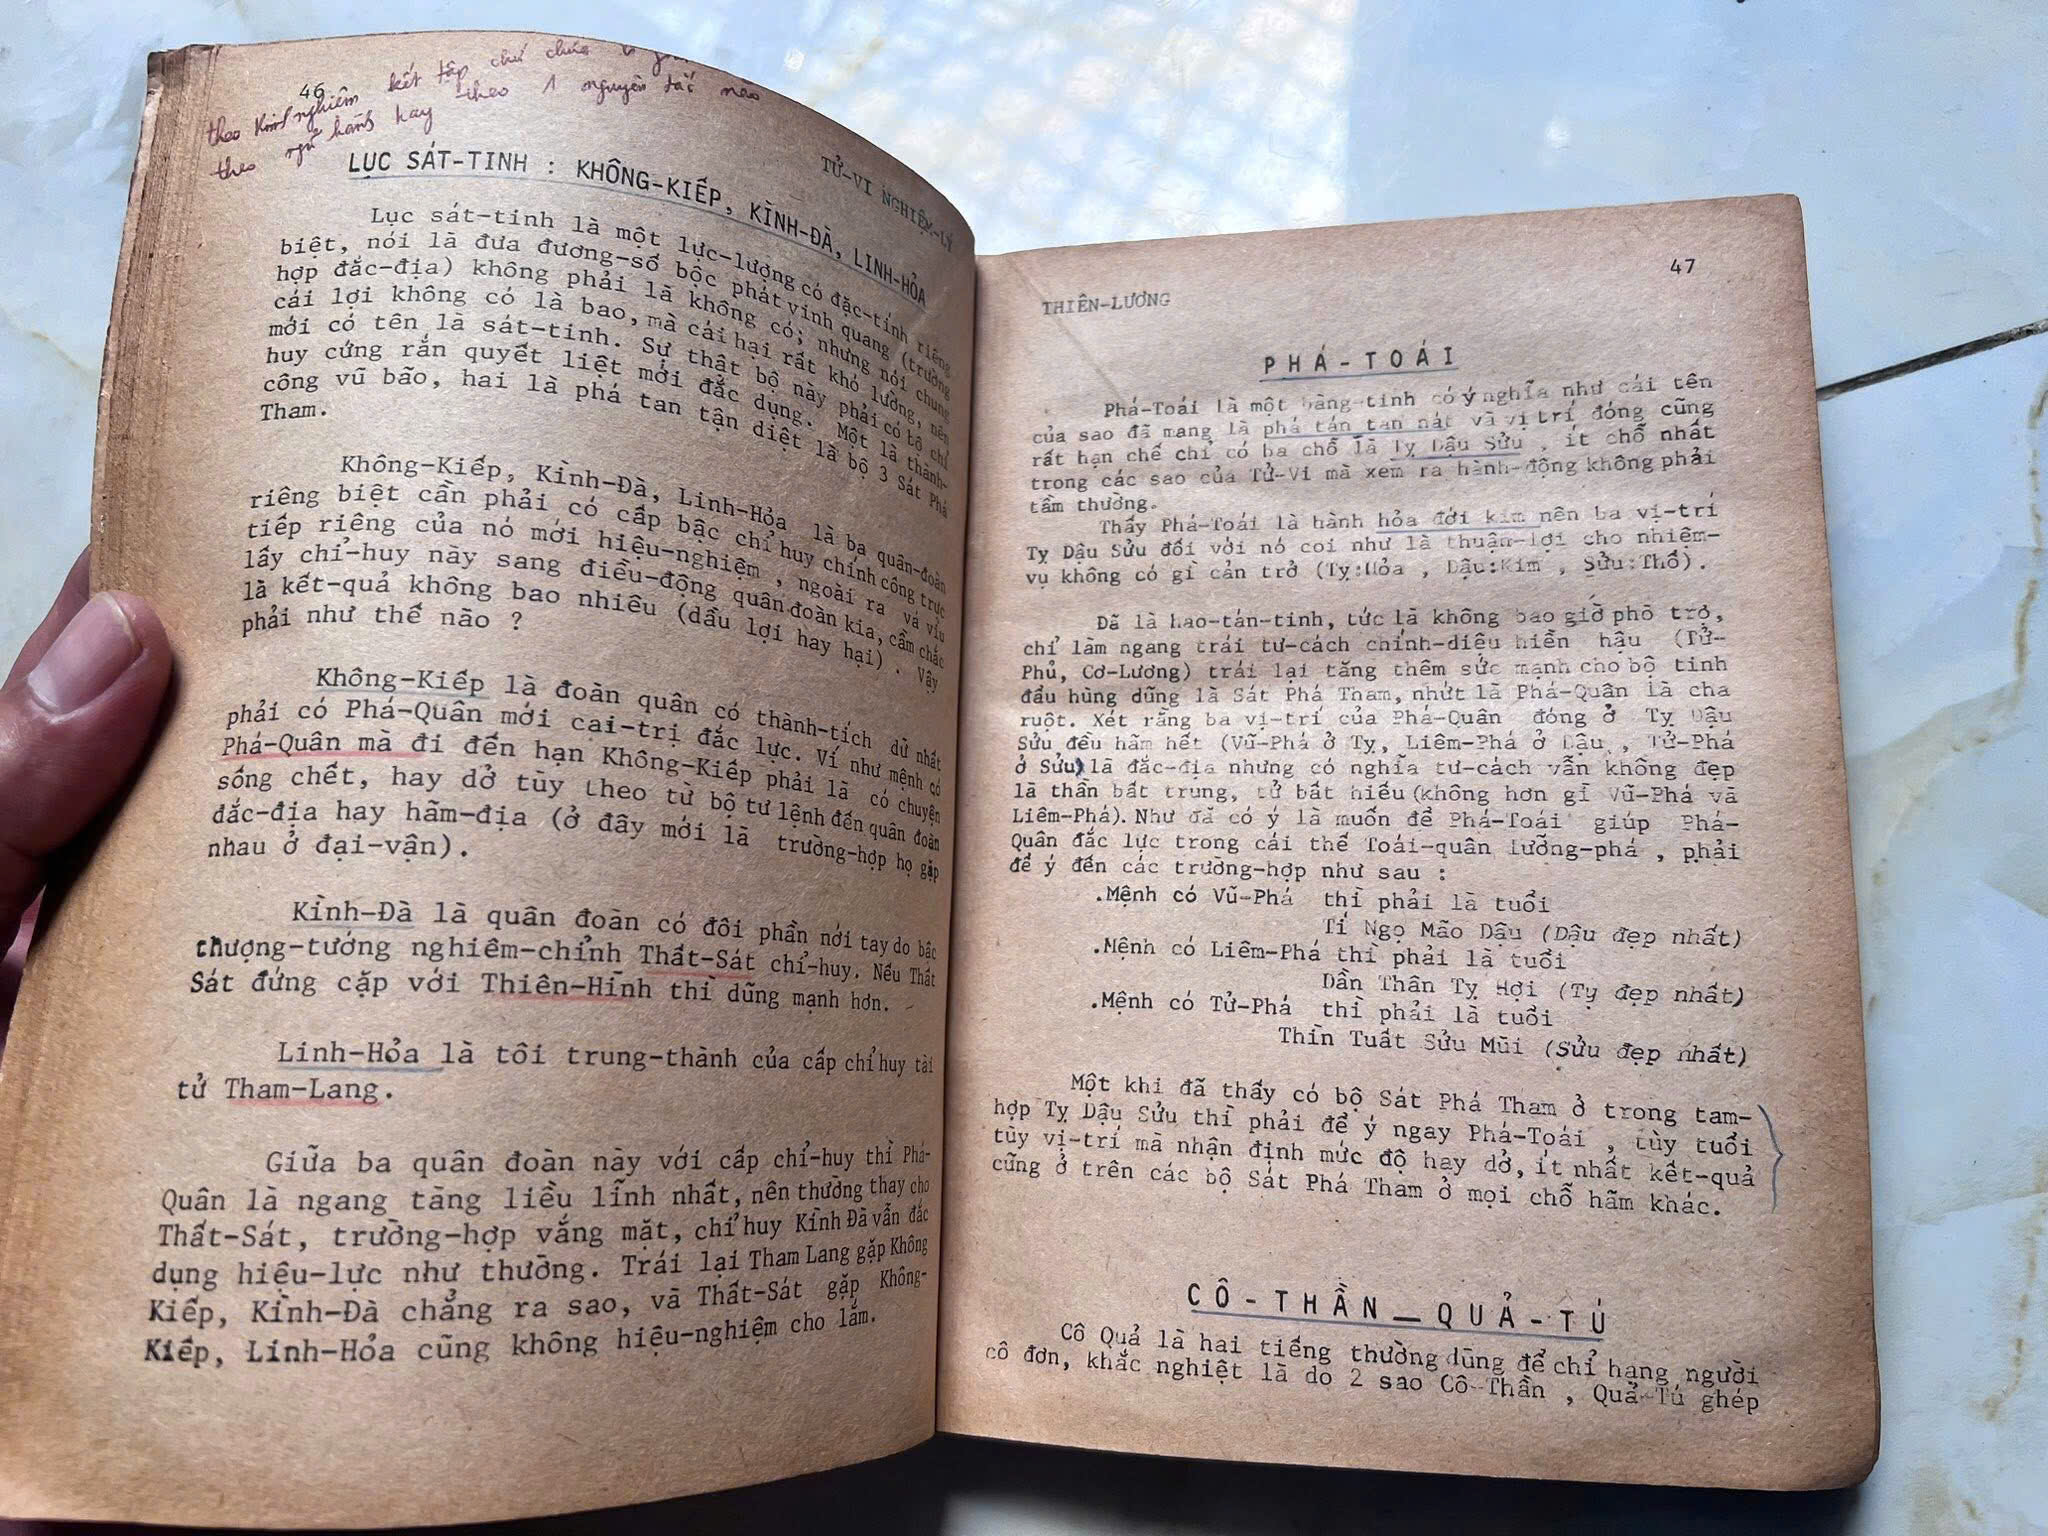 46
theo kinh nghiệm kết tập chứ chưa
theo ngũ hành hay theo 1 nguyên tắc nào
TỬ-VI NGHIỆM-LÝ
LỤC SÁT-TINH : KHÔNG-KIẾP, KÌNH-ĐÀ, LINH-HỎA
Lục sát-tinh là một lực-lượng có đặc-tính riêng
biệt, nói là đưa đương-số bộc phát vinh quang (trường
hợp đắc-địa) không phải là không có; nhưng nói chung
cái lợi không có là bao, mà cái hại rất khó lường, nên
mới có tên là sát-tinh. Sự thật bộ này phải có bộ chỉ
huy cứng rắn quyết liệt mới đắc dụng. Một là thành-
công vũ bão, hai là phá tan tận diệt là bộ 3 Sát Phá
Tham.
Không-Kiếp, Kình-Đà, Linh-Hỏa là ba quân-đoàn
riêng biệt cần phải có cấp bậc chỉ huy chính công trực
tiếp riêng của nó mới hiệu-nghiệm , ngoài ra vá víu
lấy chỉ-huy này sang điều-động quân đoàn kia, cầm chắc
là kết-quả không bao nhiêu (dầu lợi hay hại) . Vậy
phải như thế nào ?
Không-Kiếp là đoàn quân có thành-tích dữ nhất
phải có Phá-Quân mới cai-trị đắc lực. Ví như mệnh có
Phá-Quân mà đi đến hạn Không-Kiếp phải là có chuyện
sống chết, hay dở tùy theo từ bộ tư lệnh đến quân đoàn
đắc-địa hay hãm-địa (ở đây mới là trường-hợp họ gặp
nhau ở đại-vận).
Kình-Đà là quân đoàn có đôi phần nới tay do bậc
thượng-tướng nghiêm-chỉnh Thất-Sát chỉ-huy. Nếu Thất
Sát đứng cặp với Thiên-Hình thì dũng mạnh hơn.
Linh-Hỏa là tôi trung-thành của cấp chỉ huy tài
tử Tham-Lang.
Giữa ba quân đoàn này với cấp chỉ-huy thì Phá-
Quân là ngang tàng liều lĩnh nhất, nên thường thay cho
Thất-Sát, trường-hợp vắng mặt, chỉ huy Kình Đà vẫn đắc
dụng hiệu-lực như thường. Trái lại Tham Lang gặp Không
Kiếp, Kình-Đà chẳng ra sao, và Thất-Sát gặp Không-
Kiếp, Linh-Hỏa cũng không hiệu-nghiệm cho lắm.
47
THIÊN-LƯƠNG
PHÁ-TOÁI
Phá-Toái là một bàng-tinh có ý nghĩa như cái tên
của sao đã mang là phá tán tan nát và vị trí đóng cũng
rất hạn chế chỉ có ba chỗ là Tỵ Dậu Sửu , ít chỗ nhất
trong các sao của Tử-Vi mà xem ra hành-động không phải
tầm thường.
Thấy Phá-Toái là hành hỏa đới kim nên ba vị-trí
Tỵ Dậu Sửu đối với nó coi như là thuận-lợi cho nhiệm-
vụ không có gì cản trở (Tỵ:Hỏa , Dậu:Kim , Sửu:Thổ).
Đã là hao-tán-tinh, tức là không bao giờ phò trợ,
chỉ làm ngang trái tư-cách chính-diệu hiền hậu (Tử-
Phủ, Cơ-Lương) trái lại tăng thêm sức mạnh cho bộ tinh
đẩu hùng dũng là Sát Phá Tham, nhứt là Phá-Quân là cha
ruột. Xét rằng ba vị-trí của Phá-Quân đóng ở Tỵ Dậu
Sửu đều hãm hết (Vũ-Phá ở Tỵ, Liêm-Phá ở Dậu , Tử-Phá
ở Sửu) là đắc-địa nhưng có nghĩa tư-cách vẫn không đẹp
là thần bất trung, tử bất hiếu (không hơn gì Vũ-Phá và
Liêm-Phá). Như đã có ý là muốn để Phá-Toái giúp Phá-
Quân đắc lực trong cái thế Toái-quân lưỡng-phá , phải
để ý đến các trường-hợp như sau :
.Mệnh có Vũ-Phá thì phải là tuổi
Tí Ngọ Mão Dậu (Dậu đẹp nhất)
.Mệnh có Liêm-Phá thì phải là tuổi
Dần Thân Tỵ Hợi (Tỵ đẹp nhất)
.Mệnh có Tử-Phá thì phải là tuổi
Thìn Tuất Sửu Mùi (Sửu đẹp nhất)
Một khi đã thấy có bộ Sát Phá Tham ở trong tam-
hợp Tỵ Dậu Sửu thì phải để ý ngay Phá-Toái , tùy tuổi
tùy vị-trí mà nhận định mức độ hay dở, ít nhất kết-quả
cũng ở trên các bộ Sát Phá Tham ở mọi chỗ hãm khác.
CÔ-THẦN_QUẢ-TÚ
Cô Quả là hai tiếng thường dùng để chỉ hạng người
cô đơn, khắc nghiệt là do 2 sao Cô-Thần , Quả-Tú ghép